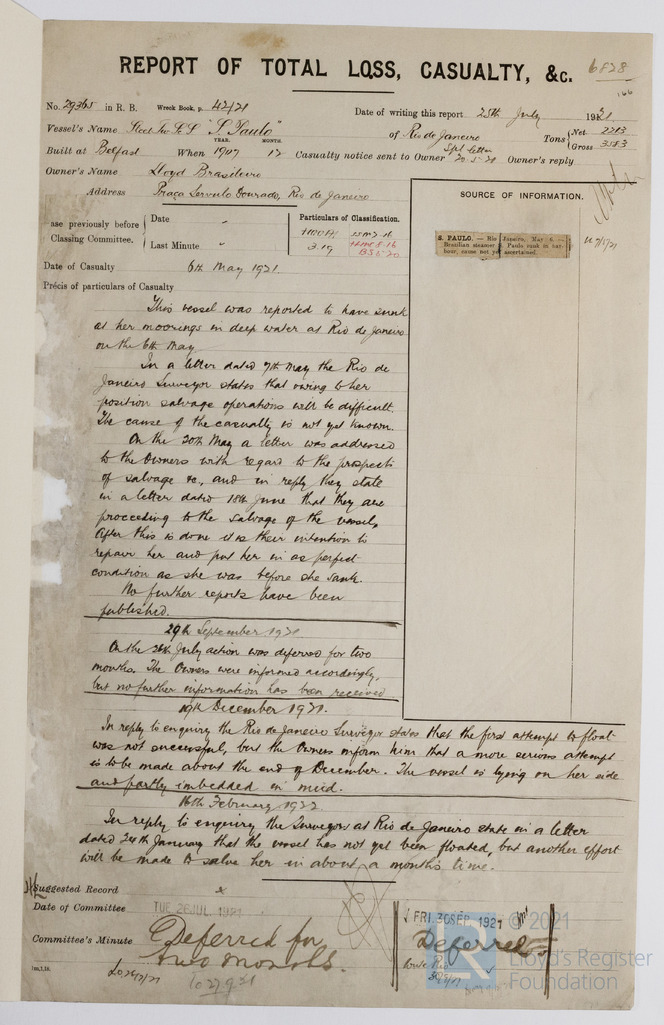 REPORT OF TOTAL LOSS, CASUALTY, &c. 6828
166
No. 29365 in R. B. Wreck Book, p. 42/21
Date of writing this report 25th July 1921.
Vessel's Name Steel "S. Paulo" of Rio de Janeiro Tons { Net
YEAR. MONTH.
Gross 3583
Built at Belfast When 1907 12 Casualty notice sent to Owner Spl letter 20.5.21 Owner's reply
Owner's Name Lloyd Brasileiro
Address Praca Servulo Dourado, Rio de Janeiro
SOURCE OF INFORMATION.
ase previously before Classing Committee.
Date "
Last Minute "
Particulars of Classification.
+100A1
3.19
Date of Casualty 6th May 1921.
S. PAULO.—Rio Janeiro, May 6.—
Brazilian steamer S. Paulo sunk in har-
bour, cause not yet ascertained.
Précis of particulars of Casualty
This vessel was reported to have sunk
at her moorings in deep water at Rio de Janeiro
on the 6th May
In a letter dated 7th May the Rio de
Janeiro Surveyor states that owing to her
position salvage operations will be difficult.
The cause of the casualty is not yet known.
On the 20th May a letter was addressed
to the Owners with regard to the prospects
of salvage &c., and in reply they state
in a letter dated 18th June that they are
proceeding to the salvage of the vessel,
After this is done it is their intention to
repair her and put her in as perfect
condition as she was before she sank.
No further reports have been
published.
29th September 1921
On the 26th July action was deferred for two
months. The Owners were informed accordingly,
but no further information has been received
19th December 1921.
In reply to enquiry the Rio de Janeiro Surveyor states that the first attempt to float
was not successful, but the Owners inform him that a more serious attempt
is to be made about the end of December. The vessel is lying on her side
and partly imbedded in mud.
16th February 1922
In reply to enquiry the Surveyors at Rio de Janeiro state in a letter
dated 24th January that the vessel has not yet been floated, but another effort
will be made to salve her in about a month's time.
Suggested Record
Date of Committee TUE 26 JUL 1921
FRI. 30 SEP. 1921
Committee's Minute Deferred for
two months.
Deferred
Write Rio
30/9/21
1m,1,18.
© 2021
Lloyd's Register
Foundation
LR